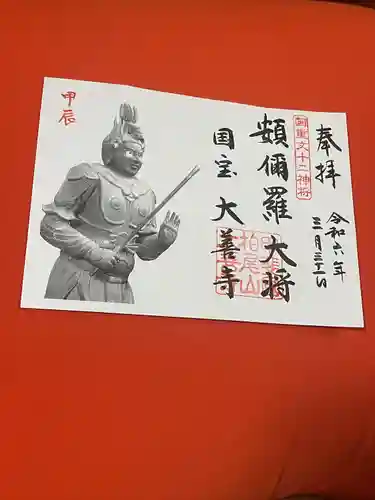 奉拝
令和六年
三月三十一日
重文十二神将
頞儞羅大将
国宝大善寺
柏尾山
甲辰